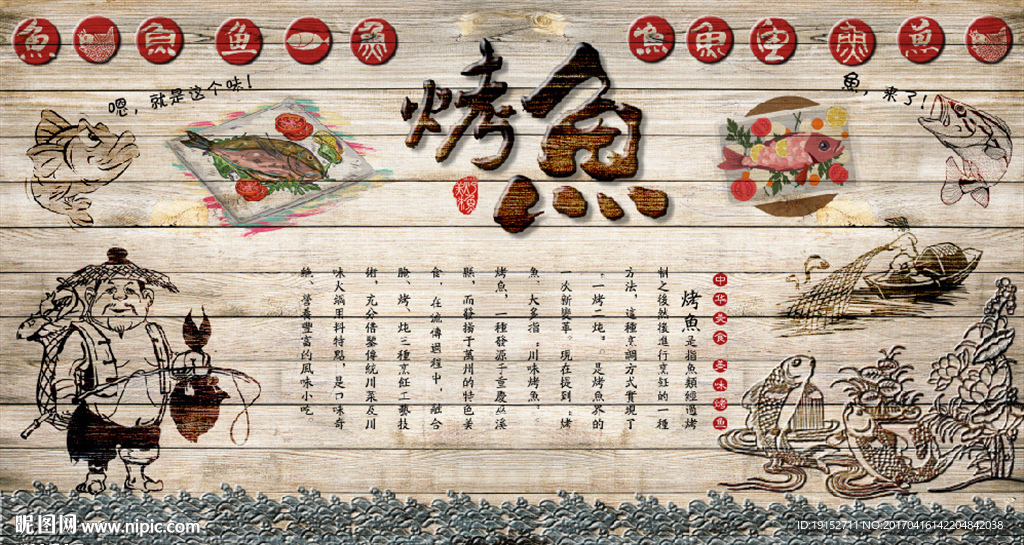 魚 魚 魚 魚 魚 魚 魚 魚
嗯，就是这个味！
魚，来了！
烤魚
中华美食 美味烤鱼
烤魚是指魚類經過烤
制之後然後進行烹飪的一種
方法，這種烹調方式實現了
“一烤二炖。”是烤魚界的
一次新變革。現在提到“烤
魚”大多指“川味烤魚”。
烤魚，一種發源于重慶巫溪
縣，而發揚于萬州的特色美
食，在流傳過程中，融合
腌、烤、炖三種烹飪工藝技
術，充分借鑒傳統川菜及川
味火鍋用料特點，是口味奇
絕、營養豐富的風味小吃。
昵图网 www.nipic.com
ID:19152711 NO:20170416142204842038